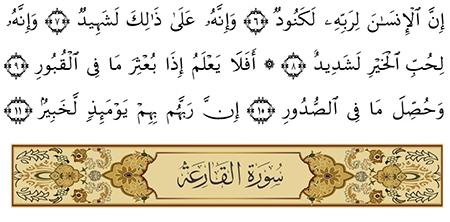 إِنَّ ٱلْإِنسَـٰنَ لِرَبِّهِۦ لَكَنُودٌ ﴿٦﴾ وَإِنَّهُۥ عَلَىٰ ذَٰلِكَ لَشَهِيدٌ ﴿٧﴾ وَإِنَّهُۥ
لِحُبِّ ٱلْخَيْرِ لَشَدِيدٌ ﴿٨﴾ ۞ أَفَلَا يَعْلَمُ إِذَا بُعْثِرَ مَا فِى ٱلْقُبُورِ ﴿٩﴾
وَحُصِّلَ مَا فِى ٱلصُّدُورِ ﴿١٠﴾ إِنَّ رَبَّهُم بِهِمْ يَوْمَئِذٍ لَّخَبِيرٌۢ ﴿١١﴾
سُورَةُ القَارِعَةِ